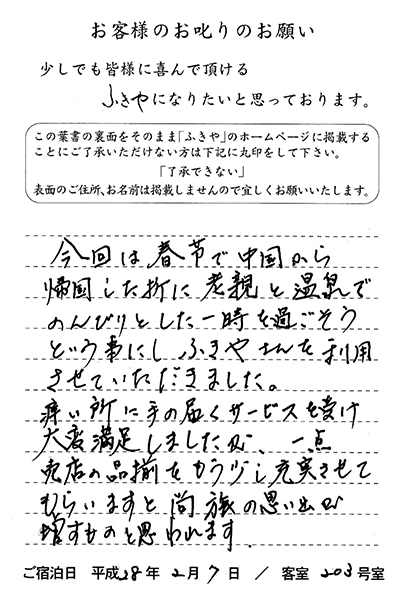 お客様のお叱りのお願い
少しでも皆様に喜んで頂ける
ふきやになりたいと思っております。
この葉書の裏面をそのまま「ふきや」のホームページに掲載する
ことにご了承いただけない方は下記に丸印をして下さい。
「了承できない」
表面のご住所、お名前は掲載しませんので宜しくお願いいたします。
今回は春节で中国から
帰国した折に老親と温泉で
のんびりとした一時を過ごそう
という事にしふきやさんを利用
させていただきました。
痒い所に手の届くサービスを受け
大変満足しましたが、一点
売店の品揃をもう少し充実させて
もらいますと尚旅の思い出が
増すものと思われます.
ご宿泊日 平成28年2月7日 / 客室 203号室